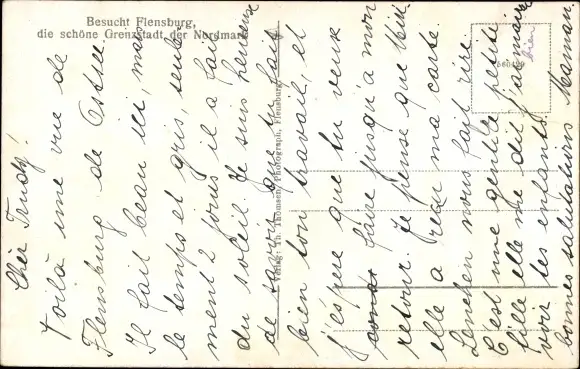 Besucht Flensburg,
die schöne Grenzstadt der Nordmark
Verlag: Th. Thomsen, Photograph, Flensburg
Chèr Trudy!
Voilà une vue de
Flensburg de Ostsee.
Il fait beau ici, mais
le temps et gris, seule-
ment 2 jours il a fait
du soleil. Je suis heureuse
de savoir que tu fait
bien ton travail, et
j'espère que tu veux
faire jusqu'à mon
retour. Je pense que
elle a reçu ma carte
Lenchen nous fait rire
C'est une gentile petite
fille elle me dit j'aimais
bien
voir tes enfants.
bonnes salutations Maman.